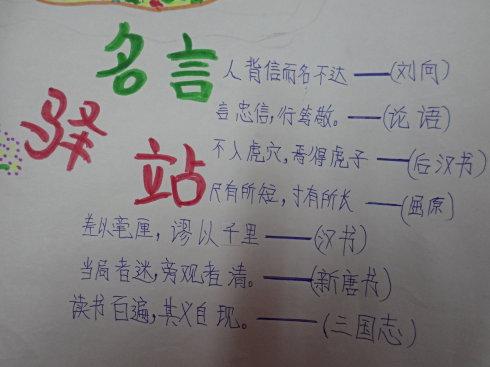 名言
驿站
人背信而名不达——(刘向)
言忠信,行笃敬。——(论语)
不入虎穴,焉得虎子——(后汉书)
尺有所短,寸有所长——(屈原)
差以毫厘,谬以千里——(汉书)
当局者迷,旁观者清。——(新唐书)
读书百遍,其义自现。——(三国志)